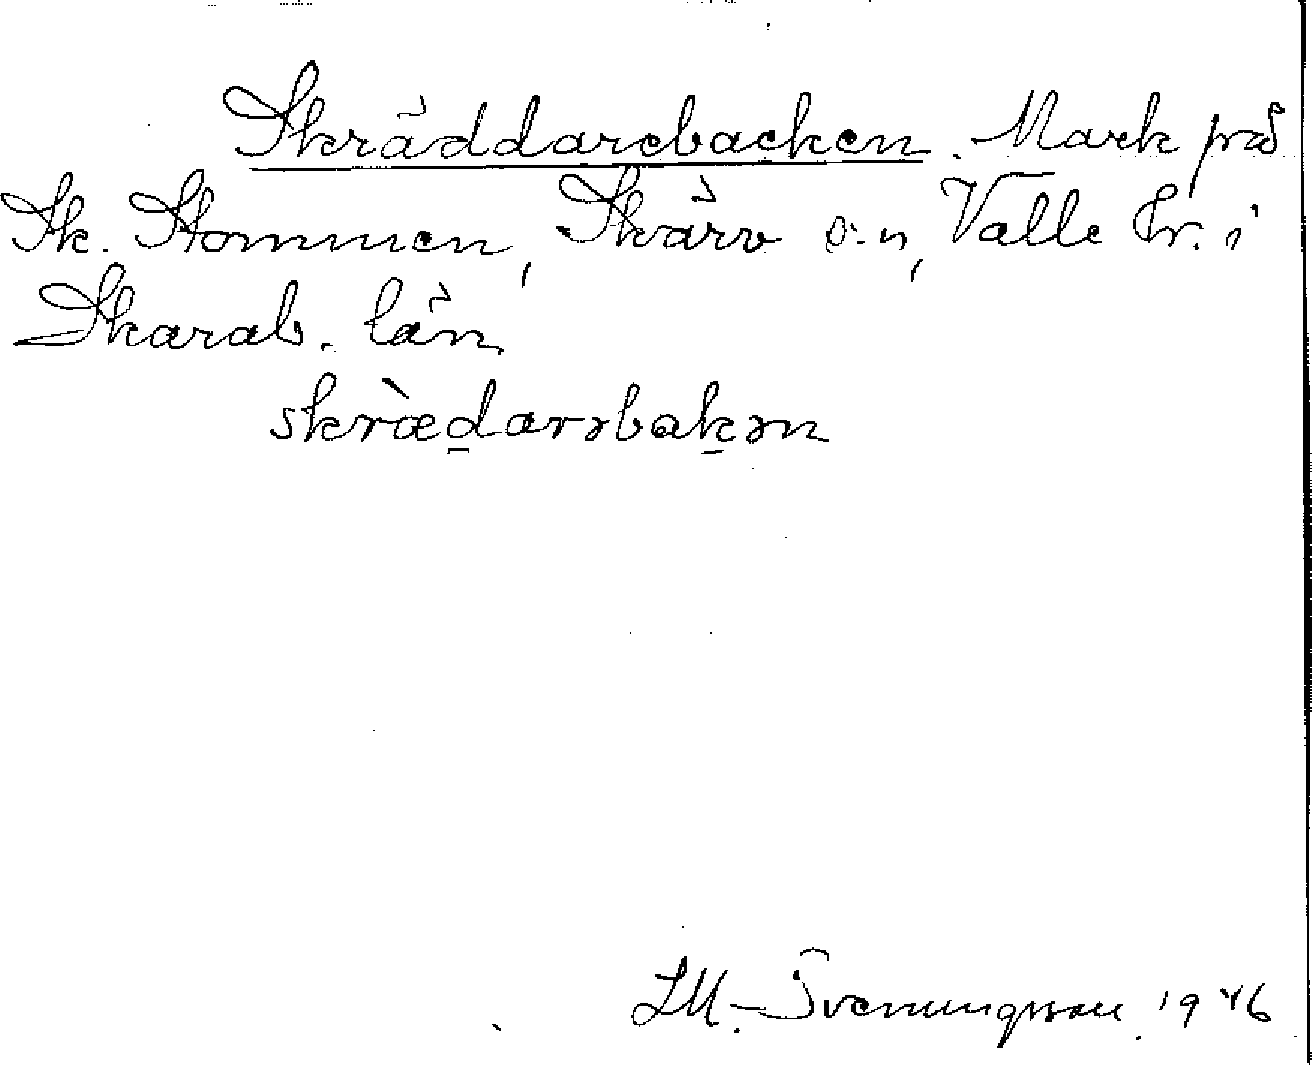 Skräddarebacken. Mark på
Sk. Stommen, Skärv s:n, Valle hr. i
Skarab. län
skræ̀d̲arəbak̲ən
Svenungsson 1946